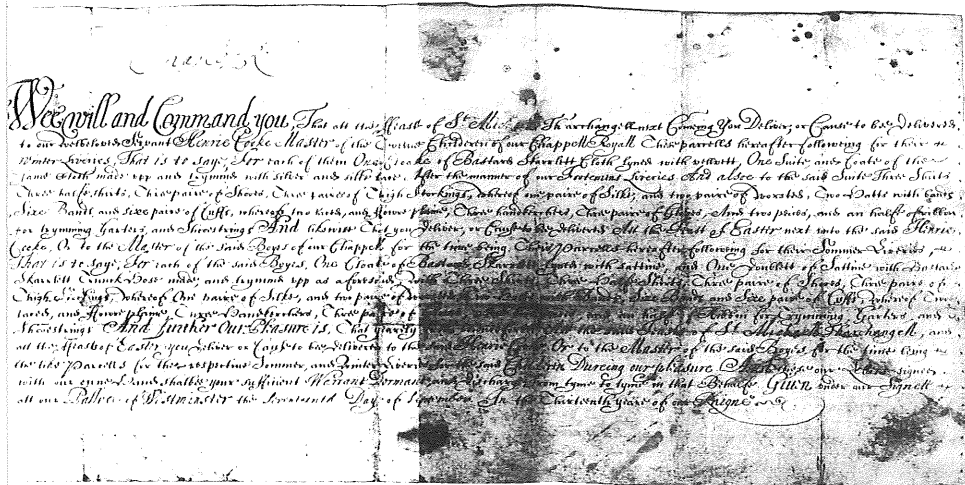 Charles R
Wee will and Command you, That att the Feast of St. Mich Tharchangell next Comeing You Deliver, or Cause to be delivered,
to our welbeloved Servant Henrie Cooke Master of the Twelve Children of our Chappell Royall Theis parcells hereafter following for their
Winter Liveries, That is to say, For each of them One Cloake of Bastard Scarlett Cloth lyned with vellvett, One Suite and Coate of the
same Cloth made upp and trymmed with silver and silke lace, After the manner of our Footemens Liveries And alsoe to the said Suite Three Shirts
Three halfe shirts, Three paire of Shoes, Three paire of Thigh Stockings, whereof one paire of Silke, and two paire of worsted, Two Hatts with bands
Sixe Bands, and sixe paire of Cuffs, whereof two laced, and Fowre plaine, Three handkerchers, Three paire of Gloves, And two peices, and an halfe of
for trymming Garters, and Shoestrings And likewise That you Deliver, or Cause to be delivered Att the Feast of Easter next unto the said Henrie
Cooke, Or to the Master of the said Boyes of our Chappell for the time being, Theis Parcells hereafter following for their Summer Liveries,
That is to say, For each of the said Boyes, One Cloake of Bastard Skarlett lyned with sattine, and One Doublett of Sattine with Bastard
Skarlett Trunk Hose made, and trymmed upp as aforesaid, with Three Shirts, Three Halfe Shirts, Three paire of Shoes, Three paire of
Thigh Stockings, whereof One paire of Silke, and two paire of Sixe Bands and Sixe paire of Cuffs whereof Two
laced, and Fowre plaine, Three Handkerchers, Three paire of and an halfe of for trymming Garters, and
Shoestrings And further Our Pleasure is, That yearely att the said Feasts of St. Michaell Tharchangell, and
att the Feast of Easter you deliver or Cause to be delivered to the said Henrie Cooke Or to the Master of the said Boyes for the time being
the like Parcells for the respective Summer, and Winter Liveries for the said Children Dureing our pleasure And theis our Letters signed
with our owne Hand shalbe your sufficient Warrant Dormant, and discharge from tyme to tyme in that Behalfe Given under our Signett
att our Pallace of Westminster the Seventeenth Day of September In the Thirteenth yeare of our Raigne